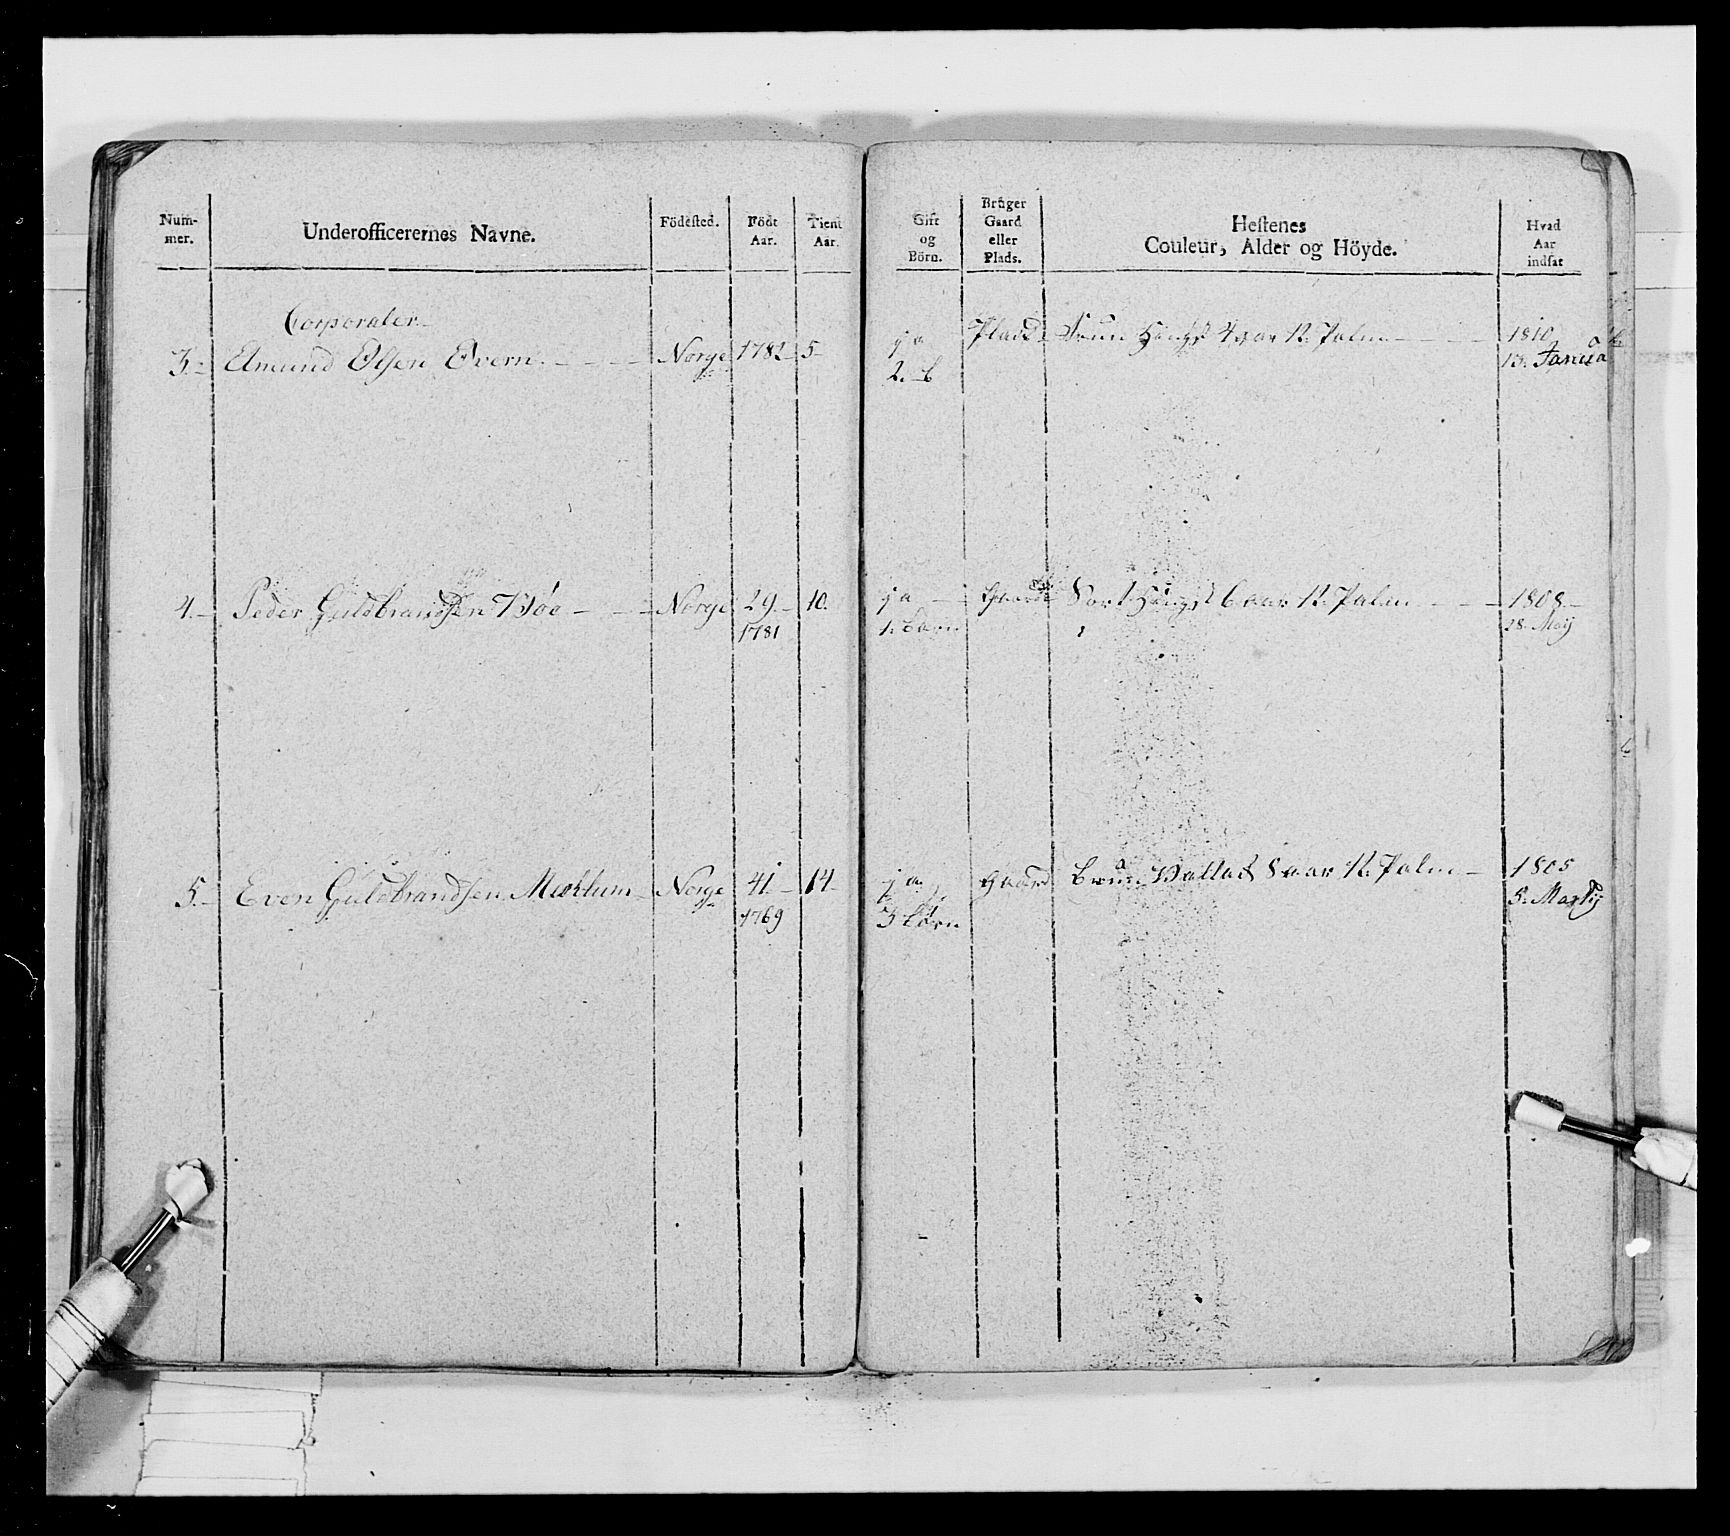 Num-
mer.
Underofficerernes Navne.
Födested.
Födt
Aar.
Tient
Aar.
Gift
og
Börn.
Bruger
Gaard
eller
Plads.
Hestenes
Couleur, Alder og Höyde.
Hvad
Aar
indsat
Corporaler
3. Amund Olsen Evern Norge 1782 5
ja
2. b
Plads Bruun Hingst 4 aar 12 Palm 1810
13. Janua
4. Peder Guldbrandsen Bøe Norge 29 10.
1781
ja Gaard Sort Hingst 6 aar 12 Palm 1808
1. barn 28. Maij
5. Even Guldbrandsen Norge 41 14
1769
ja gaard bruun Vallak 8 aar 12 Palm 1805
3 børn 5. Martij